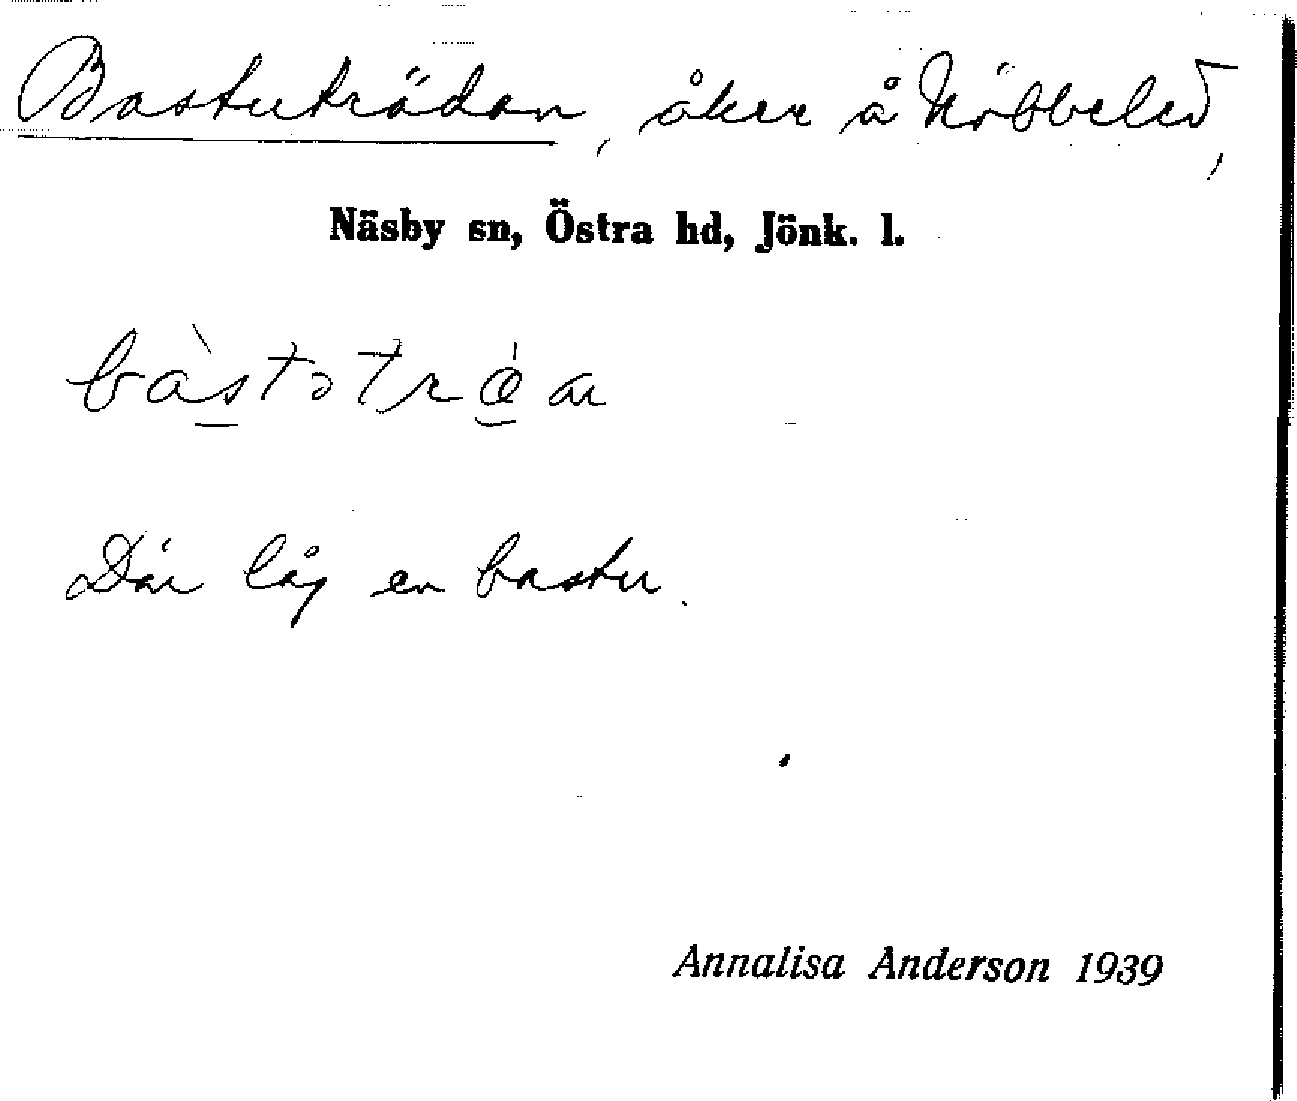 Bastuträdan, åker å Nöbbeled,
Näsby sn, Östra hd, Jönk. l.
Där låg en bastu.
Annalisa Anderson 1939